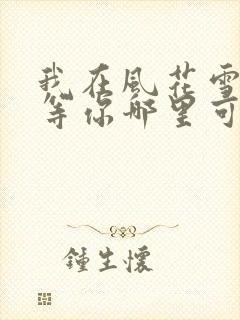 我在風花雪
等你哪里可
鍾生懷